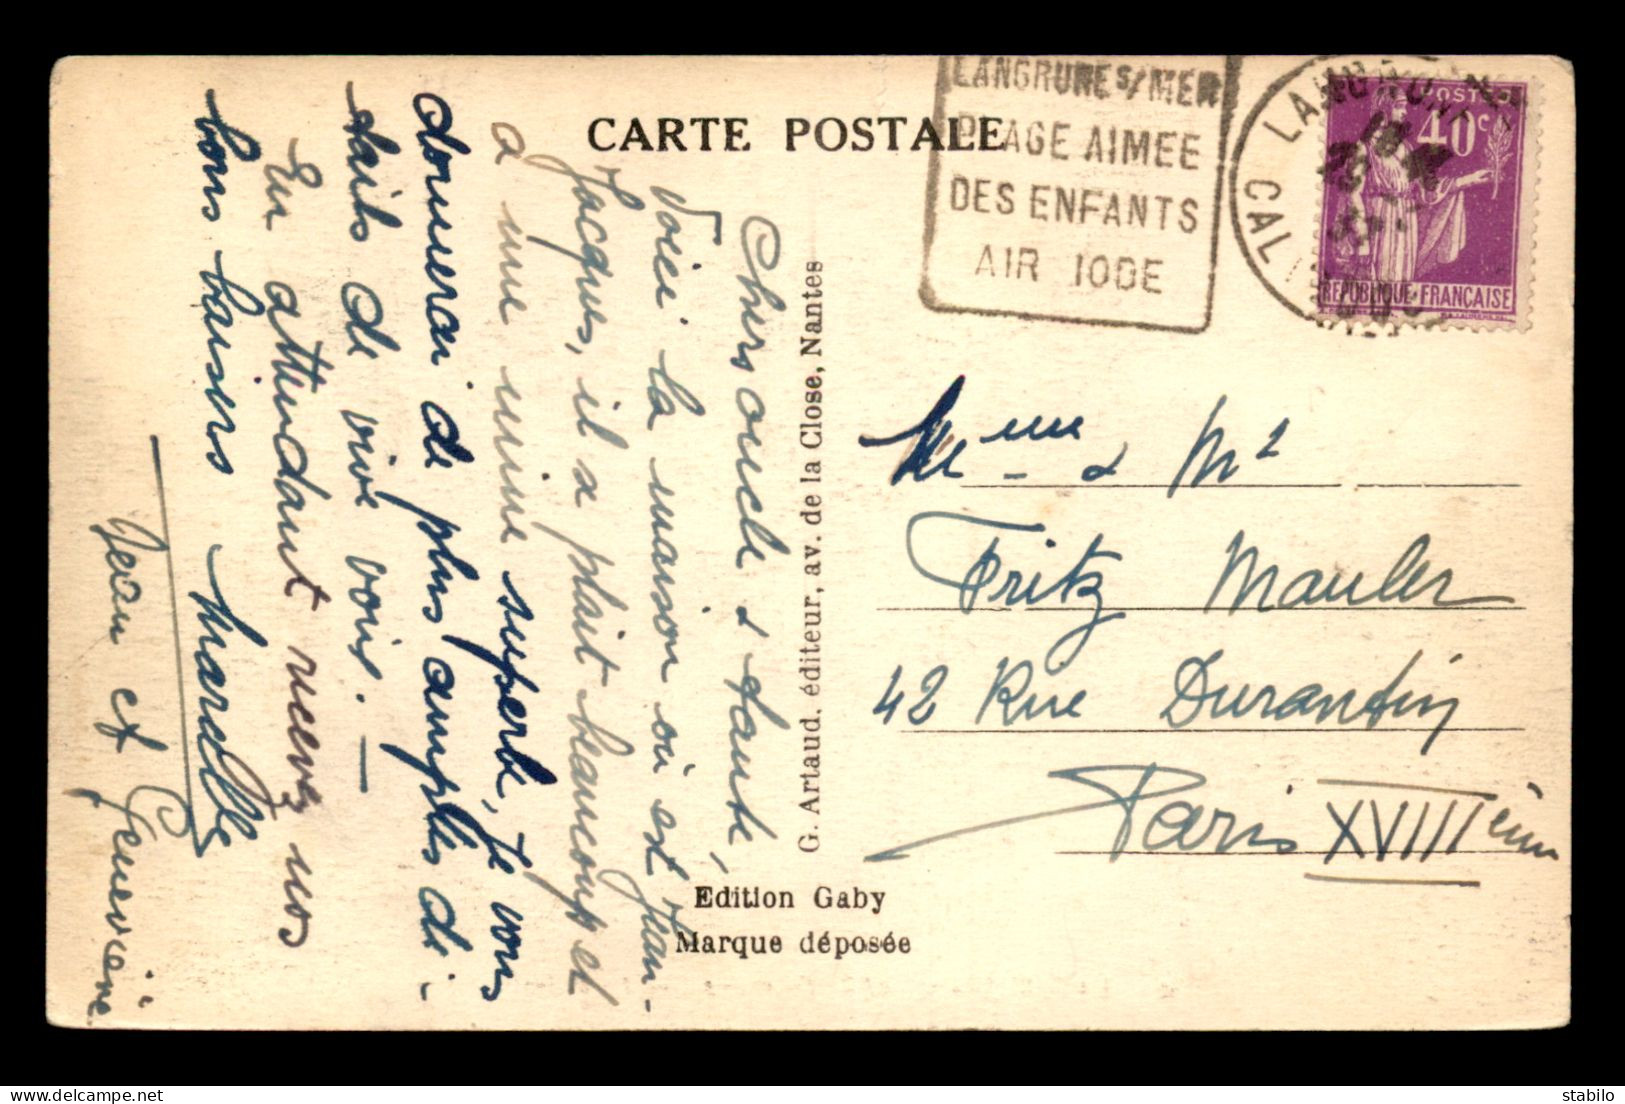 CARTE POSTALE
LANGRUNE S/MER
PLAGE AIMEE
DES ENFANTS
AIR IODE
LANGRUNE
CAL
POSTES
40c
REPUBLIQUE FRANÇAISE
Chers oncle & tante,
Voici la maison où est Jean-
Jacques, il se plait beaucoup et
a une mine superbe, je vous
donnerai de plus amples dé-
tails de vive voix. —
En attendant recevez nos
bons baisers Marcelle
Jean et Geneviève
G. Artaud, éditeur, av. de la Close, Nantes
Edition Gaby
Marque déposée
Mme & Mr
Fritz Mauler
42 Rue Durantin
Paris XVIIIème